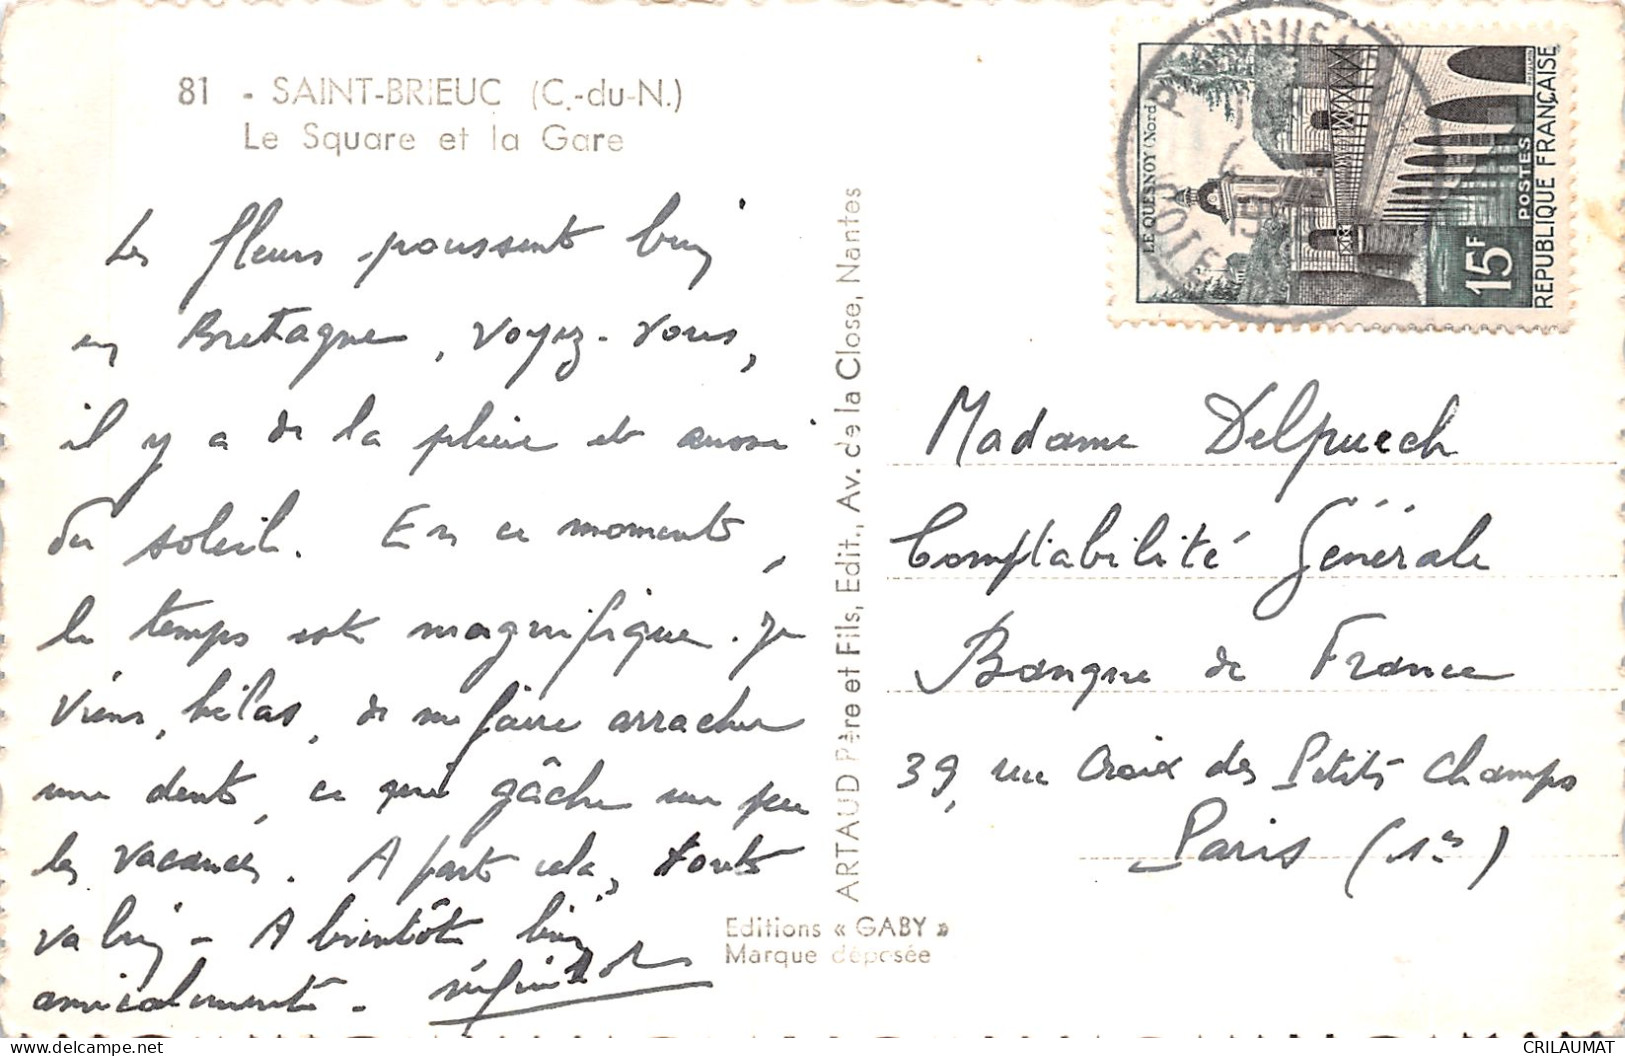 81 - SAINT-BRIEUC (C.-du-N.)
Le Square et la Gare
Les fleurs poussent bien
en Bretagne, voyez-vous,
il y a de la pluie et aussi
du soleil. En ce moment,
le temps est magnifique. Je
viens, hélas, de me faire arracher
une dent, ce qui gâche un peu
les vacances. A part cela, tout
va bien - A bientôt bien
amicalement.
ARTAUD Père et Fils, Edit., Av. de la Close, Nantes
Editions « GABY »
Marque déposée
LE QUESNOY (Nord)
15F
POSTES
REPUBLIQUE FRANÇAISE
Madame Delpuech
Comptabilité Générale
Banque de France
39, rue Croix des Petits Champs
Paris (1er)
CRILAUMAT